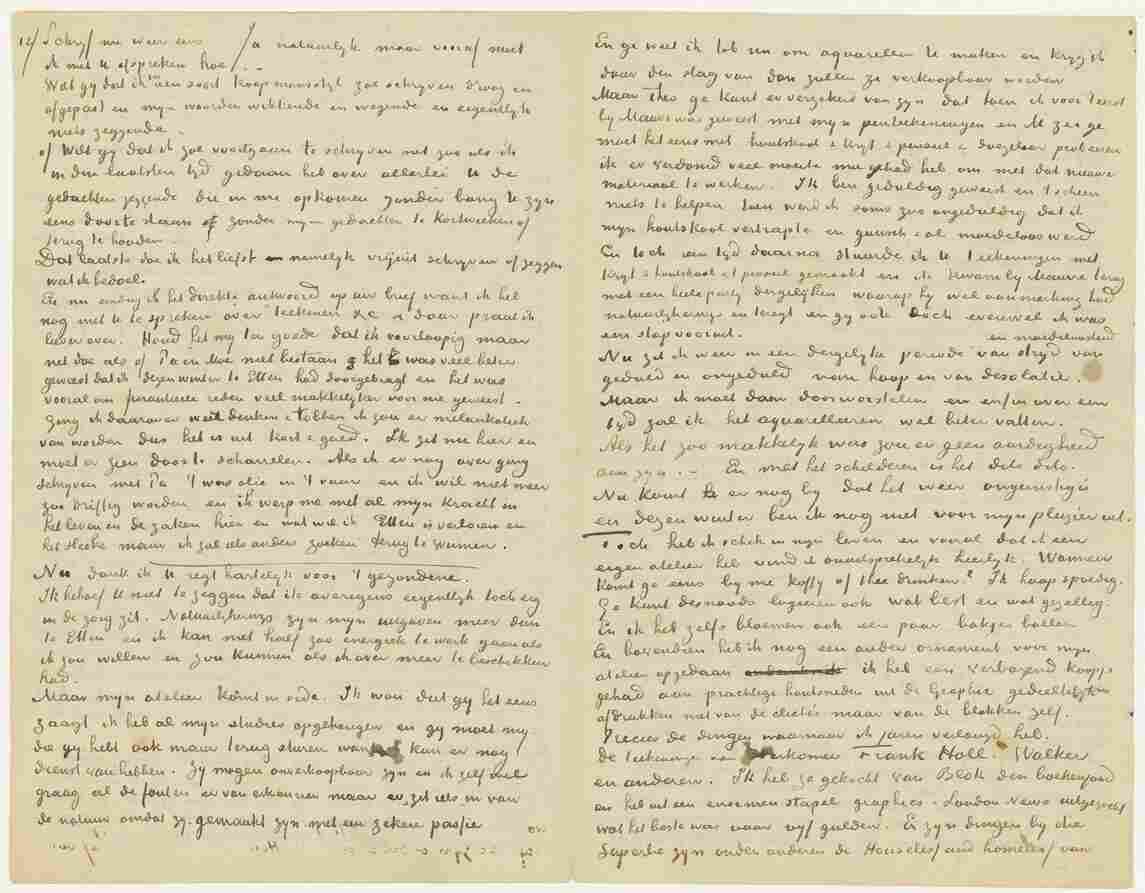 12/ Schryf me weer eens Ja natuurlyk maar vooraf moet
ik met U afspreken hoe. –
Wilt gy dat ik in een soort koopmansstyl zoe schryven droog en
afgepast en myn woorden wikkende en wegende en eigentlyk
niets zeggende –
of Wilt gy dat ik zoe voortgaan te schryven net zoo als ik
in den laatsten tyd gedaan heb over allerlei U de
gedachten zeggende die in me opkomen zonder bang te zyn
eens door te slaan of zonder myn gedachten te kortwieken of
terug te houden –
Dat laatste doe ik het liefst en namelyk vrijuit schryven of zeggen
wat ik bedoel.
En nu eindig ik het direkte antwoord op uw brief want ik heb
nog met U te spreken over teekenen &c & daar praat ik
liever over. Houd het my ten goede dat ik voorloopig maar
net doe als of Pa en Moe niet bestaan, het was veel beter
geweest dat ik dezen winter te Etten had doorgebragt en het was
vooral om pecuniaire reden veel makkelyker voor me geweest.
Ging ik daarover weer denken & tobben ik zou er melankoliek
van worden dus het is uit kort & goed. Ik zit nu hier en
moet er zien door te scharrelen. Als ik er nog over ging
schryven met Pa 't was olie in 't vuur en ik wil niet meer
zoo driftig worden en ik werp me met al myn kracht in
het leven en de zaken hier en wat wil ik Etten is verloren en
het Heike maar ik zal iets anders zoeken terug te winnen.
Nu dank ik U regt hartelyk voor 't gezondene.
Ik behoef U niet te zeggen dat ik overigens eigentlyk toch erg
in de zorg zit. Natuurlykerwys zyn myn uitgaven meer dan
te Etten en ik kan niet half zoo energiek te werk gaan als
ik zou willen en zou kunnen als ik over meer te beschikken
had.
Maar myn atelier komt in orde. Ik wou dat gy het eens
zaagt ik heb al myn studies opgehangen en gy moet my
die gy hebt ook maar terug sturen want kan er nog
dienst van hebben. Zy mogen onverkoopbaar zyn en ik zelf wil
graag al de fouten er van erkennen maar er zit iets in van
de natuur omdat zy gemaakt zyn met een zekere passie
En ge weet ik tob nu om aquarellen te maken en kryg ik
daar den slag van dan zullen ze verkoopbaar worden
Maar Theo ge kunt er verzekerd van zyn dat toen ik voor 't eerst
by Mauve was geweest met myn penteekeningen en M zei ge
moet het eens met houtskool & kryt & penseel & doezelaar probeeren
ik er verdomd veel moeite mee gehad heb om met dat nieuwe
materiaal te werken. Ik ben geduldig geweest en 't scheen
niets te helpen toen werd ik soms zoo ongeduldig dat ik
myn houtskool vertrapte en gansch & al moedeloos werd
En toch een tyd daarna stuurde ik U teekeningen met
kryt & houtskool & t penseel gemaakt en ik kwam by Mauve terug
met een heele party dergelijken waarop hy wel aanmerking had
natuurlykerwys en teregt en gy ook doch evenwel ik was
een stap vooruit.
Nu zit ik weer in een dergelyke periode van stryd van en moedeloosheid
geduld en ongeduld van hoop en van desolatie.
Maar ik moet dan doorworstelen en enfin over een
tyd zal ik het aquarelleeren wel beter vatten.
Als het zoo makkelyk was zou er geen aardigheid
aan zyn. – En met het schilderen is het dito dito.
Nu komt er nog by dat het weer ongunstig is
en dezen winter ben ik nog niet voor myn plezier uit.
Toch heb ik schik in myn leven en vooral dat ik een
eigen atelier heb vind ik onuitsprekelyk heerlyk. Wanneer
komt ge eens by me koffy of thee drinken? Ik hoop spoedig.
Ge kunt desnoods logeeren ook wat best en wat gezellig.
En ik heb zelfs bloemen ook een paar bakjes bollen
En bovendien heb ik nog een ander ornament voor myn
atelier opgedaan ik heb een verbazend koopje
gehad aan prachtige houtsneden uit de Graphic gedeeltelyk
afdrukken niet van de clichés maar van de blokken zelf.
Precies de dingen waarnaar ik jaren verlangd heb.
De teekeningen van Herkomer Frank Holl. Walker
en anderen. Ik heb ze gekocht van Blok den boekenjood
en heb uit een enormen stapel graphics & London News uitgezocht
wat het beste was voor vyf gulden. Er zyn dingen by die
superbe zyn onder anderen de Houseless and homeless van